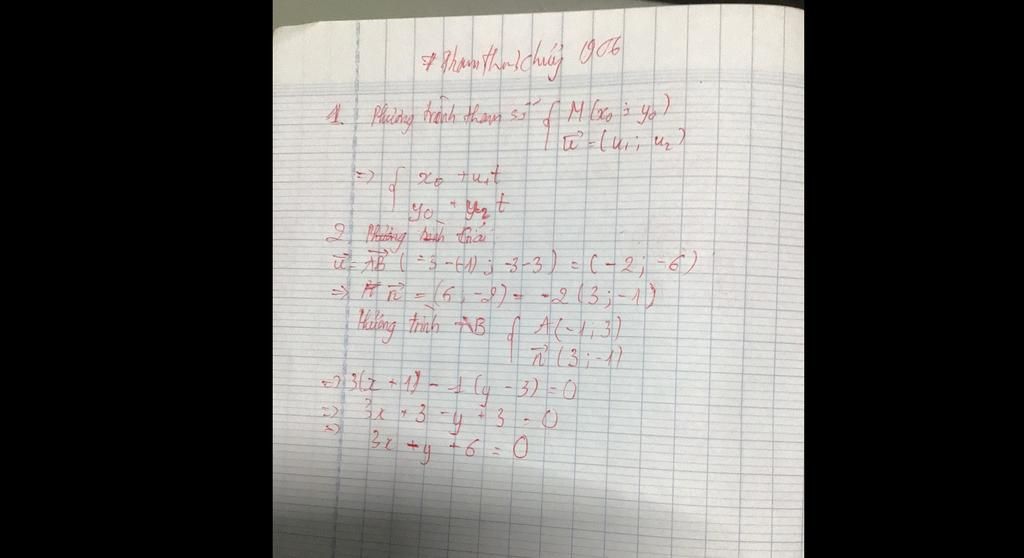 * Phạm Thuỳ Chuý 1906
1. Phương trình tham số { M(x₀ ; y₀)
u⃗ = (u₁ ; u₂)
=> { x₀ + u₁t
y₀ + u₂t
2 Phương trình Giải
u⃗ = AB⃗ ( -3-(-1) ; -3-3) = (-2 ; -6)
=> n⃗ = (6 ; -2) = -2(3 ; -1)
Phương trình AB { A(-1 ; 3)
n⃗ (3 ; -1)
=> 3(x + 1) - 1(y - 3) = 0
=> 3x + 3 - y + 3 = 0
=> 3x - y + 6 = 0